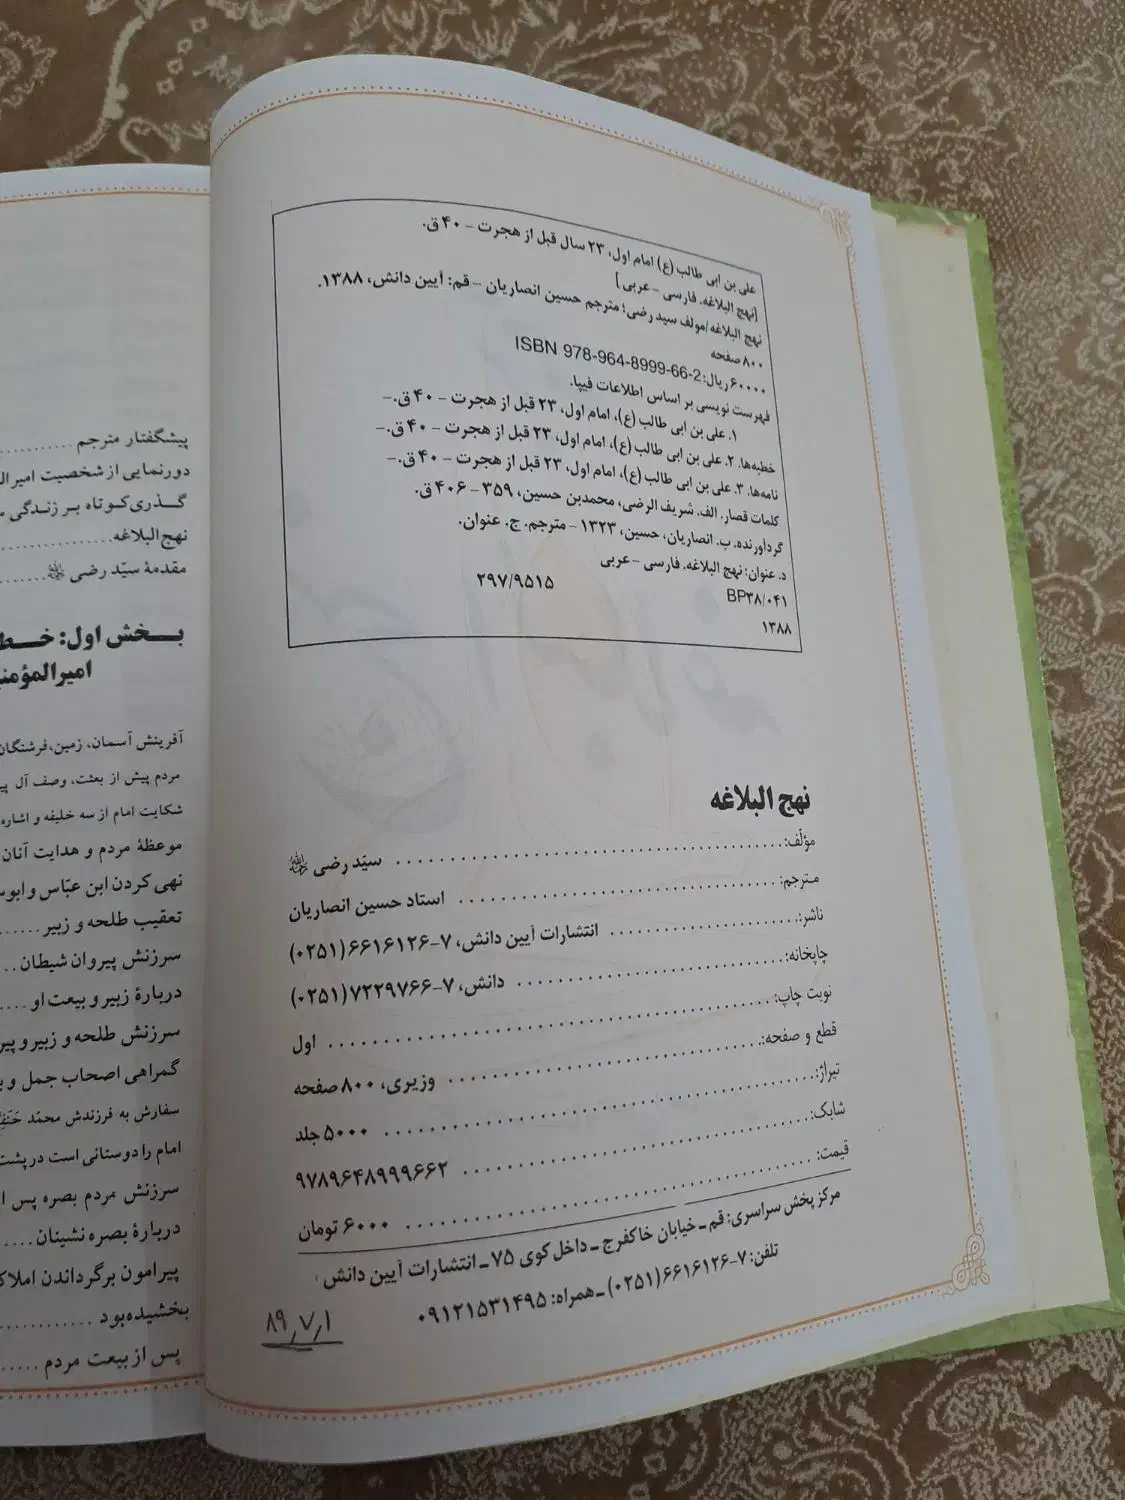 علی بن ابی طالب (ع) امام اول، ۲۳ سال قبل از هجرت - ۴۰ ق.
[نهج البلاغه. فارسی - عربی]
نهج البلاغه/مولف سید رضی؛ مترجم حسین انصاریان - قم: آیین دانش، ۱۳۸۸.
۸۰۰ صفحه
۶۰۰۰۰ ریال: ISBN 978-964-8999-66-2
فهرست نویسی بر اساس اطلاعات فیپا.
۱. علی بن ابی طالب (ع)، امام اول، ۲۳ قبل از هجرت - ۴۰ ق.-
خطبه‌ها. ۲. علی بن ابی طالب (ع)، امام اول، ۲۳ قبل از هجرت - ۴۰ ق.-
نامه‌ها. ۳. علی بن ابی طالب (ع)، امام اول، ۲۳ قبل از هجرت - ۴۰ ق.-
کلمات قصار. الف. شریف الرضی، محمدبن حسین، ۳۵۹ - ۴۰۶ ق.
گردآورنده. ب. انصاریان، حسین، ۱۳۲۳ - مترجم. ج. عنوان.
د. عنوان: نهج البلاغه. فارسی - عربی
۲۹۷/۹۵۱۵ BP۳۸/۰۴۱
۱۳۸۸
نهج البلاغه
مؤلّف: سیّد رضی
مترجم: استاد حسین انصاریان
ناشر: انتشارات آیین دانش، ۷-۶۶۱۶۱۲۶(۰۲۵۱)
چاپخانه: دانش، ۷-۷۲۲۹۷۶۶(۰۲۵۱)
نوبت چاپ: اول
قطع و صفحه: وزیری، ۸۰۰ صفحه
تیراژ: ۵۰۰۰ جلد
شابک: ۹۷۸۹۶۴۸۹۹۹۶۶۲
قیمت: ۶۰۰۰ تومان
مرکز پخش سراسری: قم ـ خیابان خاکفرج ـ داخل کوی ۷۵ ـ انتشارات آیین دانش
تلفن: ۷-۶۶۱۶۱۲۶(۰۲۵۱) ـ همراه: ۰۹۱۲۱۵۳۱۴۹۵
۸۹٫۷٫۱
پیشگفتار مترجم
دورنمایی از شخصیت
گذری کوتاه بر زندگی
نهج البلاغه
مقدمهٔ سیّد رضی
بخش اول:
آفرینش آسمان، زمین، فرشتگان
مردم پیش از بعثت، وصف آل
شکایت امام از سه خلیفه و اشاره
موعظهٔ مردم و هدایت آنان
نهی کردن ابن عبّاس و
تعقیب طلحه و زبیر
سرزنش پیروان شیطان
دربارهٔ زبیر و بیعت او
سرزنش طلحه و زبیر و
گمراهی اصحاب جمل و
سفارش به فرزندش محمّد
امام را دوستانی است در
سرزنش مردم بصره پس
دربارهٔ بصره نشینان
پیرامون برگرداندن
بخشیده بود
پس از بیعت مردم